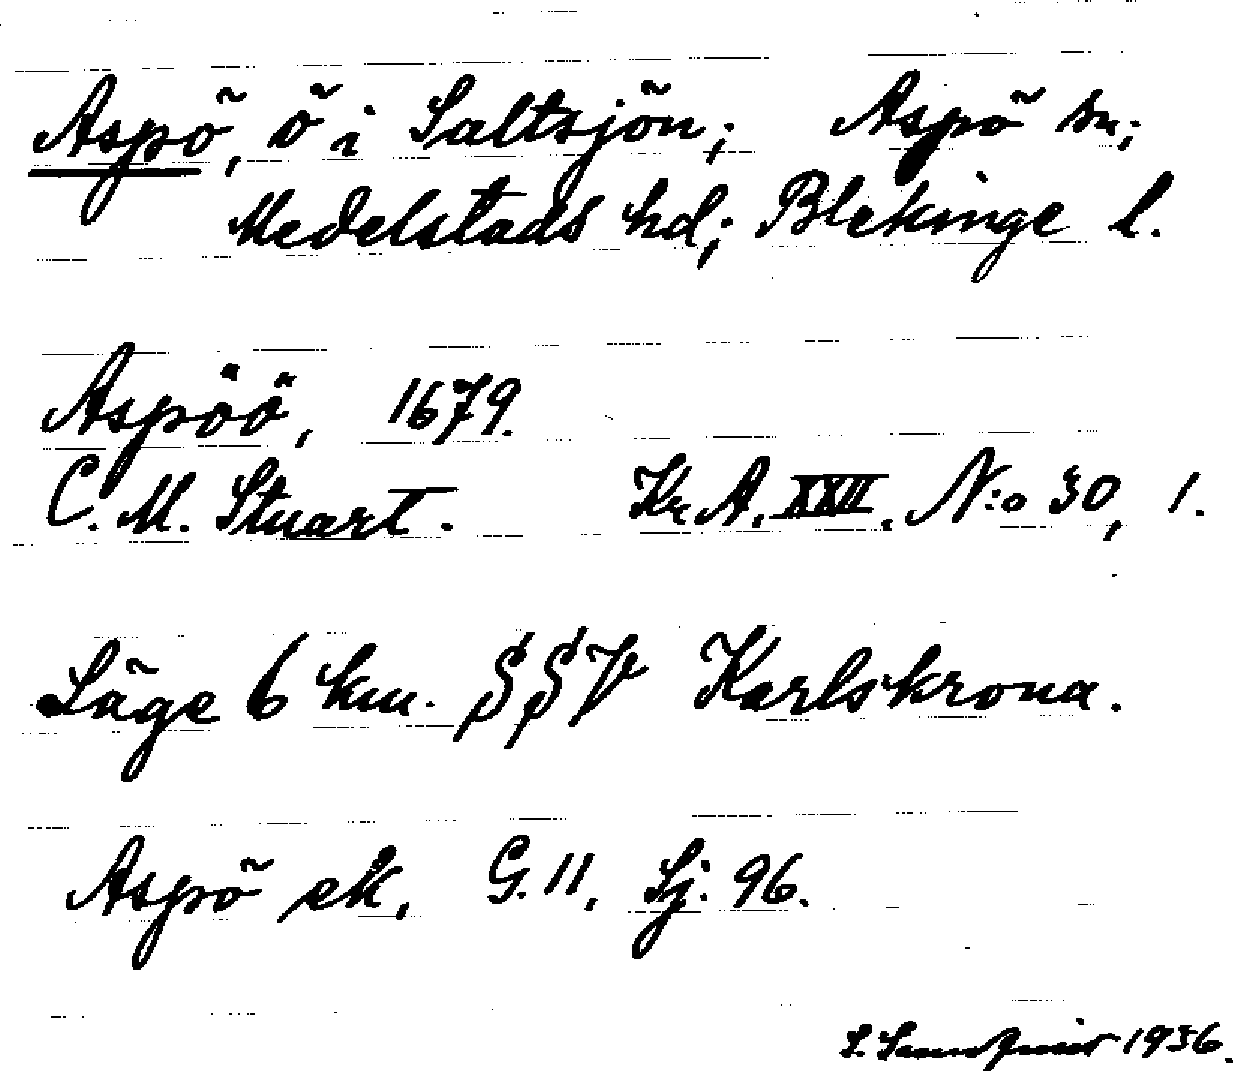 Aspö, ö i Saltsjön; Aspö sn;
Medelstads hd; Blekinge l.
Aspöö, 1679.
C. M. Stuart. Kr. A. XXII. N:o 30, 1.
Läge 6 km. SSV Karlskrona.
Aspö ek. G. 11. Sj. 96.
1936.